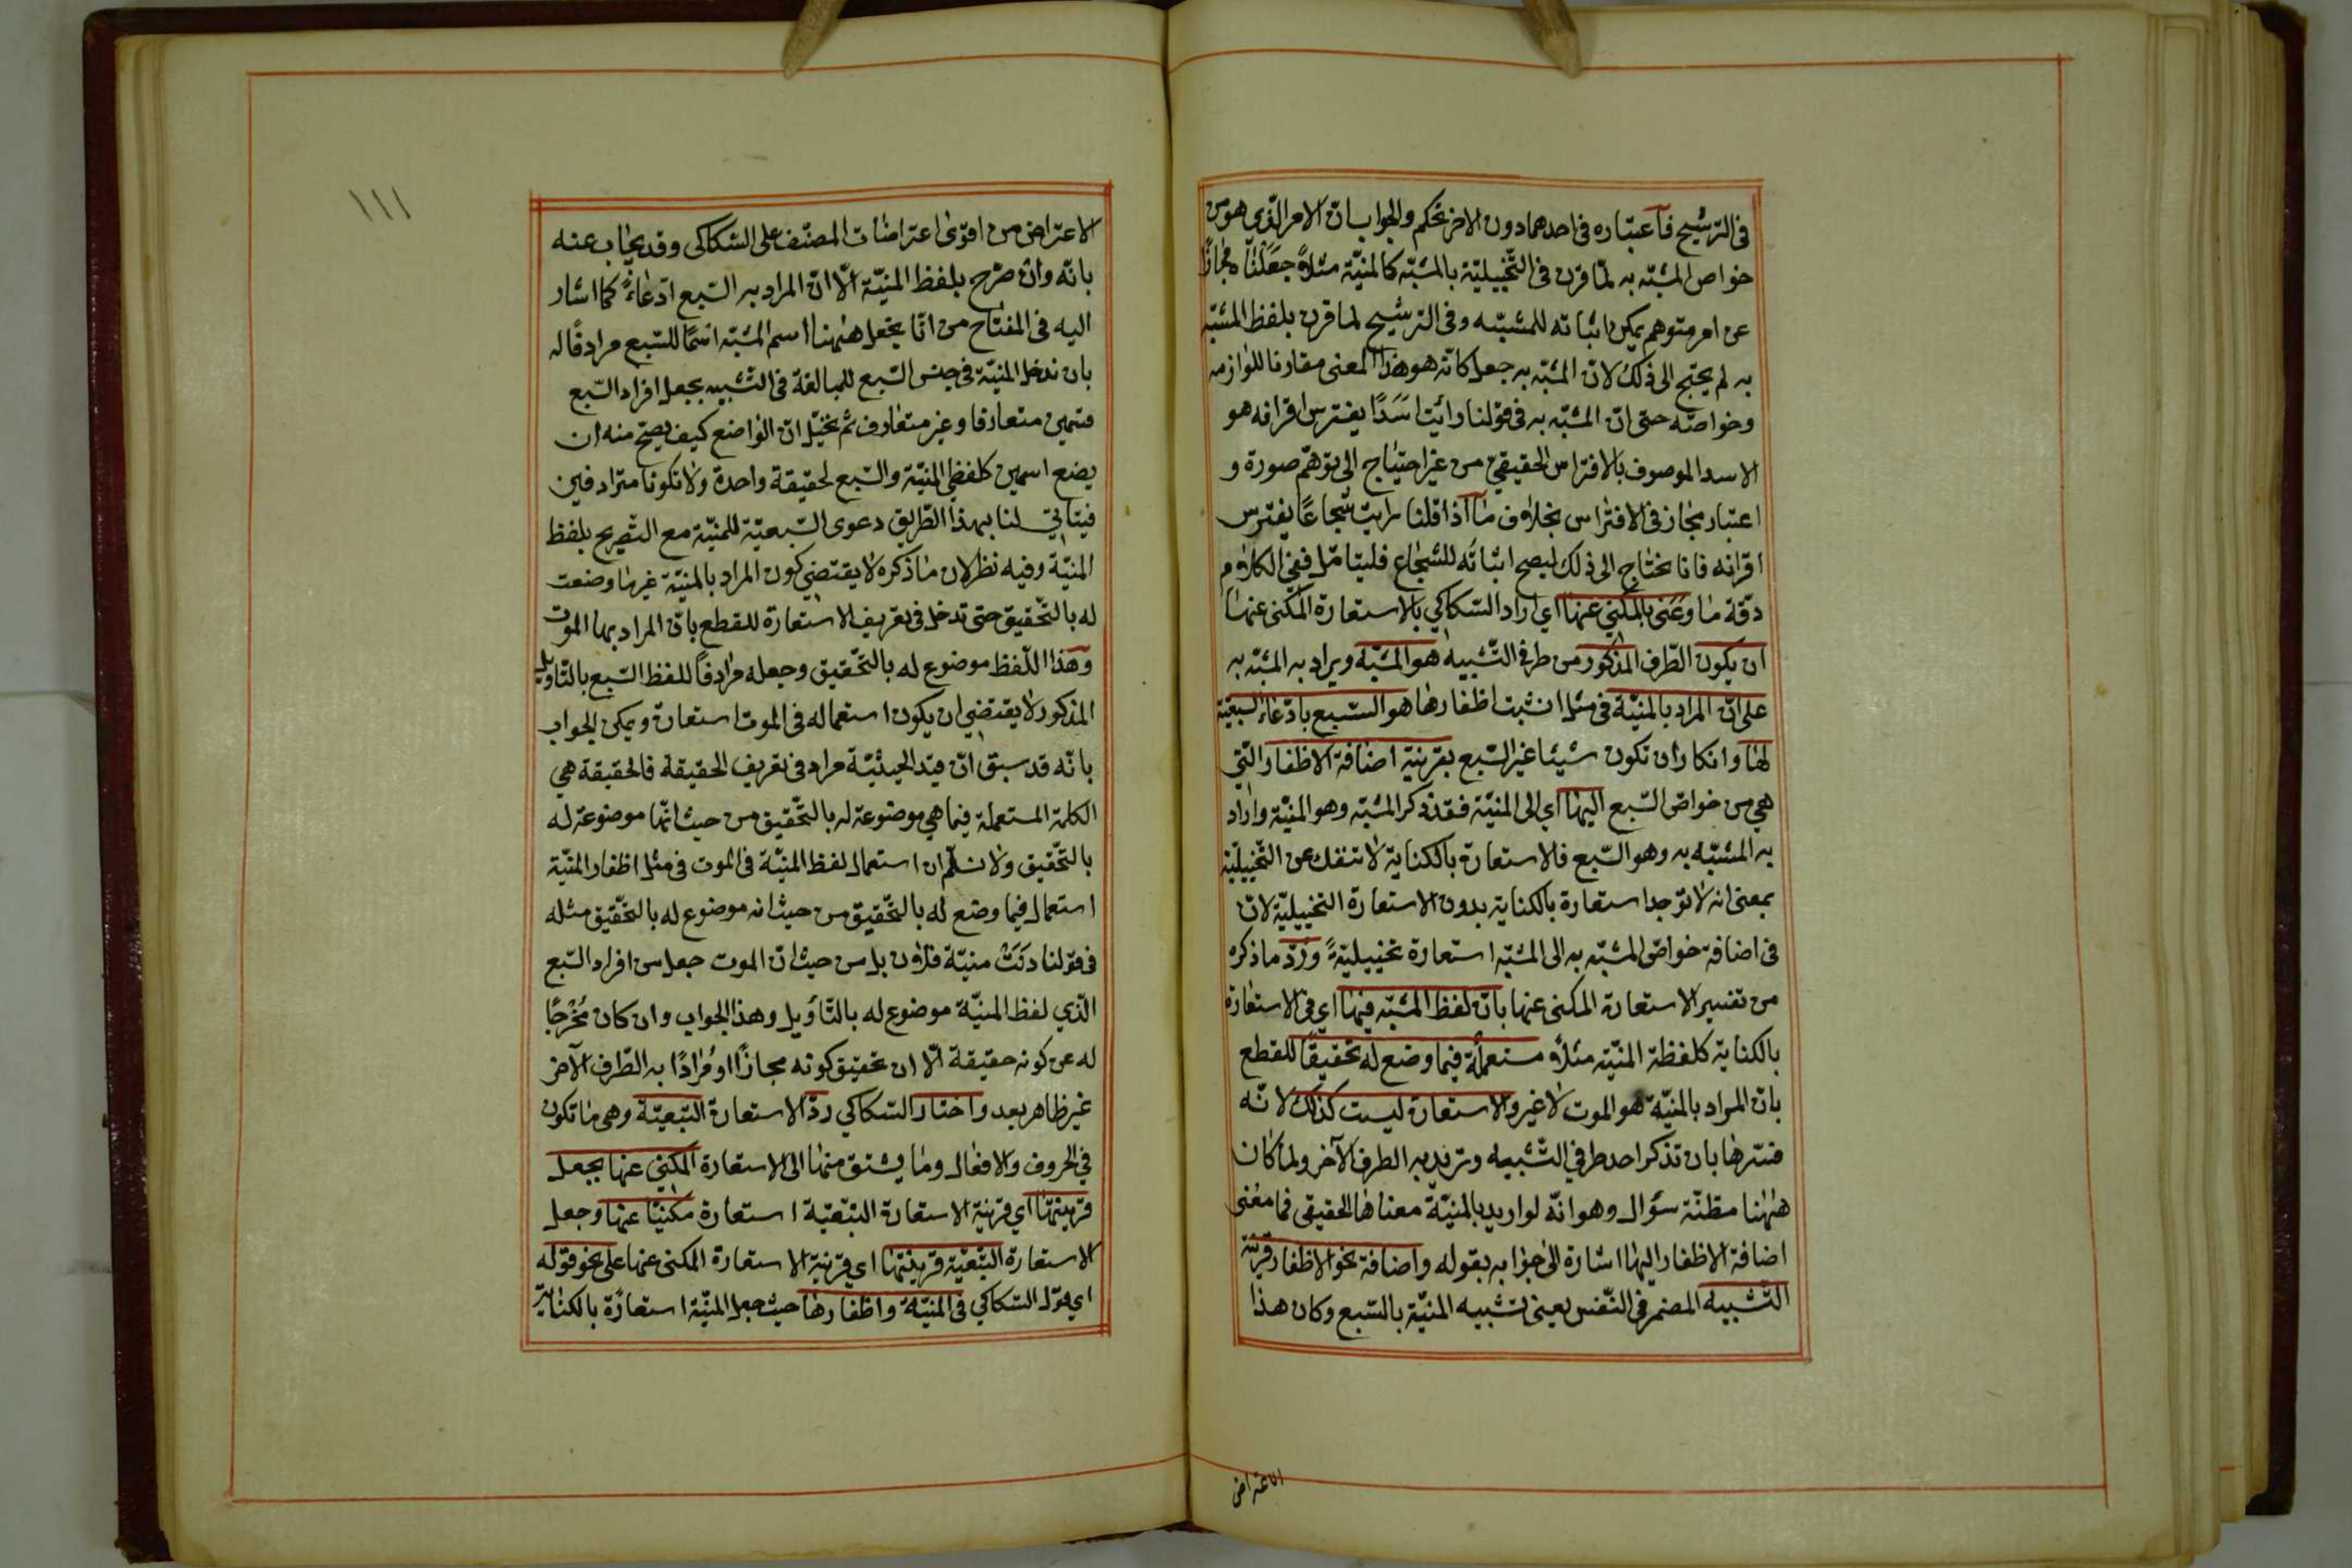 فى الترشيح فاعتباره فى احدهما دون الاخر تحكم والجواب ان الامر الذي هو من
خواص المشبه به لمّا قرن فى التّخييليّة بالمشبّه كالمنيّة مثلاً جعلنٰا مجازًا
عن امر متوهم يمكن اثباته للمشبّه وفى الترشيح لما قرن بلفظ المشبّه
به لم يحتج الى ذلك لانّ المشبّه به جعل كانّه هو هذا المعنى مقارنا للوازمه
وخواصّه حتى انّ المشبّه به فى قولنا رائيت اسَدًا يفترس اقرانه هو
الاسد الموصوف بالافتراس الحقيقيّ من غير احتيٰاج الى توهّم صورة و
اعتبار مجٰاز فى الافتراس بخلاف مٰا اذا قلنا رايت شجاعًا يفترس
اقرانه فانا نحتٰاج الى ذلك ليصح اثباتُه للشجٰاع فليتامّل ففى الكلام
دقّة مٰا وعَنى بالمكنيّ عنهٰا اي اراد السّكاكي بالاستعارة المكنى عنهٰا
ان يكون الطّرف المذكور من طرفى التّشبيه هو المشبّه ويراد به المشبّه به
على انّ المراد بالمنيّة فى مثل انشبت اظفارهٰا هو السّبع بادّعٰاء السبعيّة
لهٰا وانكار ان تكون شيئا غير السّبع بقرينة اضافة الاظفار التّي
هي من خواصّ السّبع اليهٰا اي الى المنيّة فقد ذكر المشبّه وهو المنيّة واراد
به المشبّه به وهو السّبع فالاستعارة بالكناية لا تنفك عن التّخييليّة
بمعنى انه لا توجد استعارة بالكناية بدون الاستعارة التخييليّة لانّ
فى اضافة خواصّ المشبّه به الى المشبّه استعارة تخييليّةً ورُدّ ماذكره
من تفسير الاستعارة المكنى عنها بانّ لفظ المشبّه فيهٰا اي فى الاستعارة
بالكناية كلفظة المنيّة مثلاً مستعملة فيما وضع له تحقيقًا للقطع
بانّ المراد بالمنيّة هو الموت لا غير والاستعارة ليست كذلك لانّه
فسّرهٰا بان تذكر احد طرفي التّشبيه وتريد به الطرف الآخر ولمّا كان
هٰهنا مظنّة سؤال وهو انّه لو اريد بالمنيّة معناهٰا الحقيقى فما معنى
اضافة الاظفار اليهٰا اشارة الى جوٰابه بقوله واضافة نحو الاظفار قرينة
التّشبيه المضمر فى النّفس يعنى تشبيه المنيّة بالسّبع وكان هذا
الاعتراض
١١١
الاعتراض من اقوى اعتراضات المصنّف على السّكاكى وقد يجٰاب عنه
بانّه وان صرّح بلفظ المنيّة الّا انّ المراد به السّبع ادّعٰاءً كما اشار
اليه فى المفتاح من انّا نجعل هٰهنا اسم المشبّه اسمًا للسّبع مرادفًا له
بان ندخل المنيّة فى جنس السّبع للمبالغة فى التّشبيه بجعل افراد السّبع
قسمين متعارفا وغير متعٰارف ثم نخيّل انّ الوٰاضع كيف يصحّ منه ان
يضع اسمين كلفظي المنيّة والسّبع لحقيقة واحدة ولا تكونا مترادفين
فيتاتّي لنا بهذا الطّريق دعوى السّبعيّة للمنيّة مع التّصريح بلفظ
المنيّة وفيه نظر لان مٰا ذكره لا يقتضي كون المراد بالمنيّة غير مٰا وضعت
له بالتّحقيق حتى تدخل فى تعريف الاستعارة للقطع بانّ المراد بهٰا الموت
وهذا اللّفظ موضوع له بالتّحقيق وجعله مرٰادفاً للفظ السّبع بالتّاويل
المذكور لا يقتضي ان يكون استعماله فى الموت استعارة ويمكن الجواب
بانّه قد سبق انّ قيد الحيثيّة مراد فى تعريف الحقيقة فالحقيقة هي
الكلمة المستعملة فيما هي موضوعة له بالتّحقيق من حيث انّها موضوعة له
بالتّحقيق ولا نسلّم ان استعمال لفظ المنيّة فى الموت فى مثل اظفار المنيّة
استعمال فيما وضع له بالتّحقيق من حيث انه موضوع له بالتّحقيق مثله
فى قولنا دَنَتْ منيّة فلان بل من حيث انّ الموت جعل من افراد السّبع
الّذي لفظ المنيّة موضوع له بالتّاويل وهذا الجواب وان كان مُخْرجًا
له عن كونه حقيقة الّا ان تحقيق كونه مجازًا ومُرادًا به الطّرف الآخر
غير ظاهر بعد واختار السّكاكي ردّ الاستعارة التّبعيّة وهى مٰا تكون
في الحروف والافعٰال ومٰا يشتق منهٰا الى الاستعارة المكنيّ عنهٰا بجعل
قرينتهٰا اي قرينة الاستعارة التّبعيّة استعارة مكنيّا عنها وجعل
الاستعارة التّبعيّة قرينتهٰا اي قرينة الاستعارة المكنى عنها على نحو قوله
اي قول السّكاكي فى المنيّة واظفارهٰا حيث جعل المنيّة استعارة بالكناية